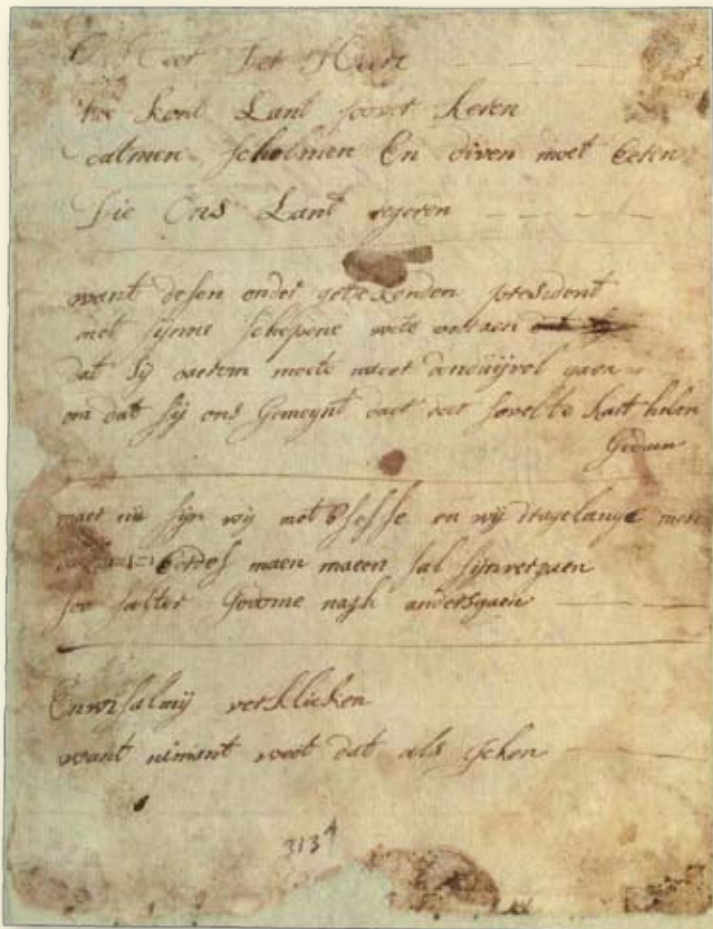 O Heer Der Heere
hoe kont Lant soover keren
datmen schelmen En diven moet Eeren
Die Ons Lant regeren
want desen onder getekenden president
met sijnne schepene
dat sij daerom moete naert duijvel gaen
om dat sij ons Gemeynt daer door sovel te kort heben
Gedaen
maer nu sijn wij met 6 sesse en wij drage lange mes
Eerdes maen maeen sal sijn vergaen
soo salter Godome nogh anders gaen
En wi sal mij verklicken
want nimant weet dat als icken
3134